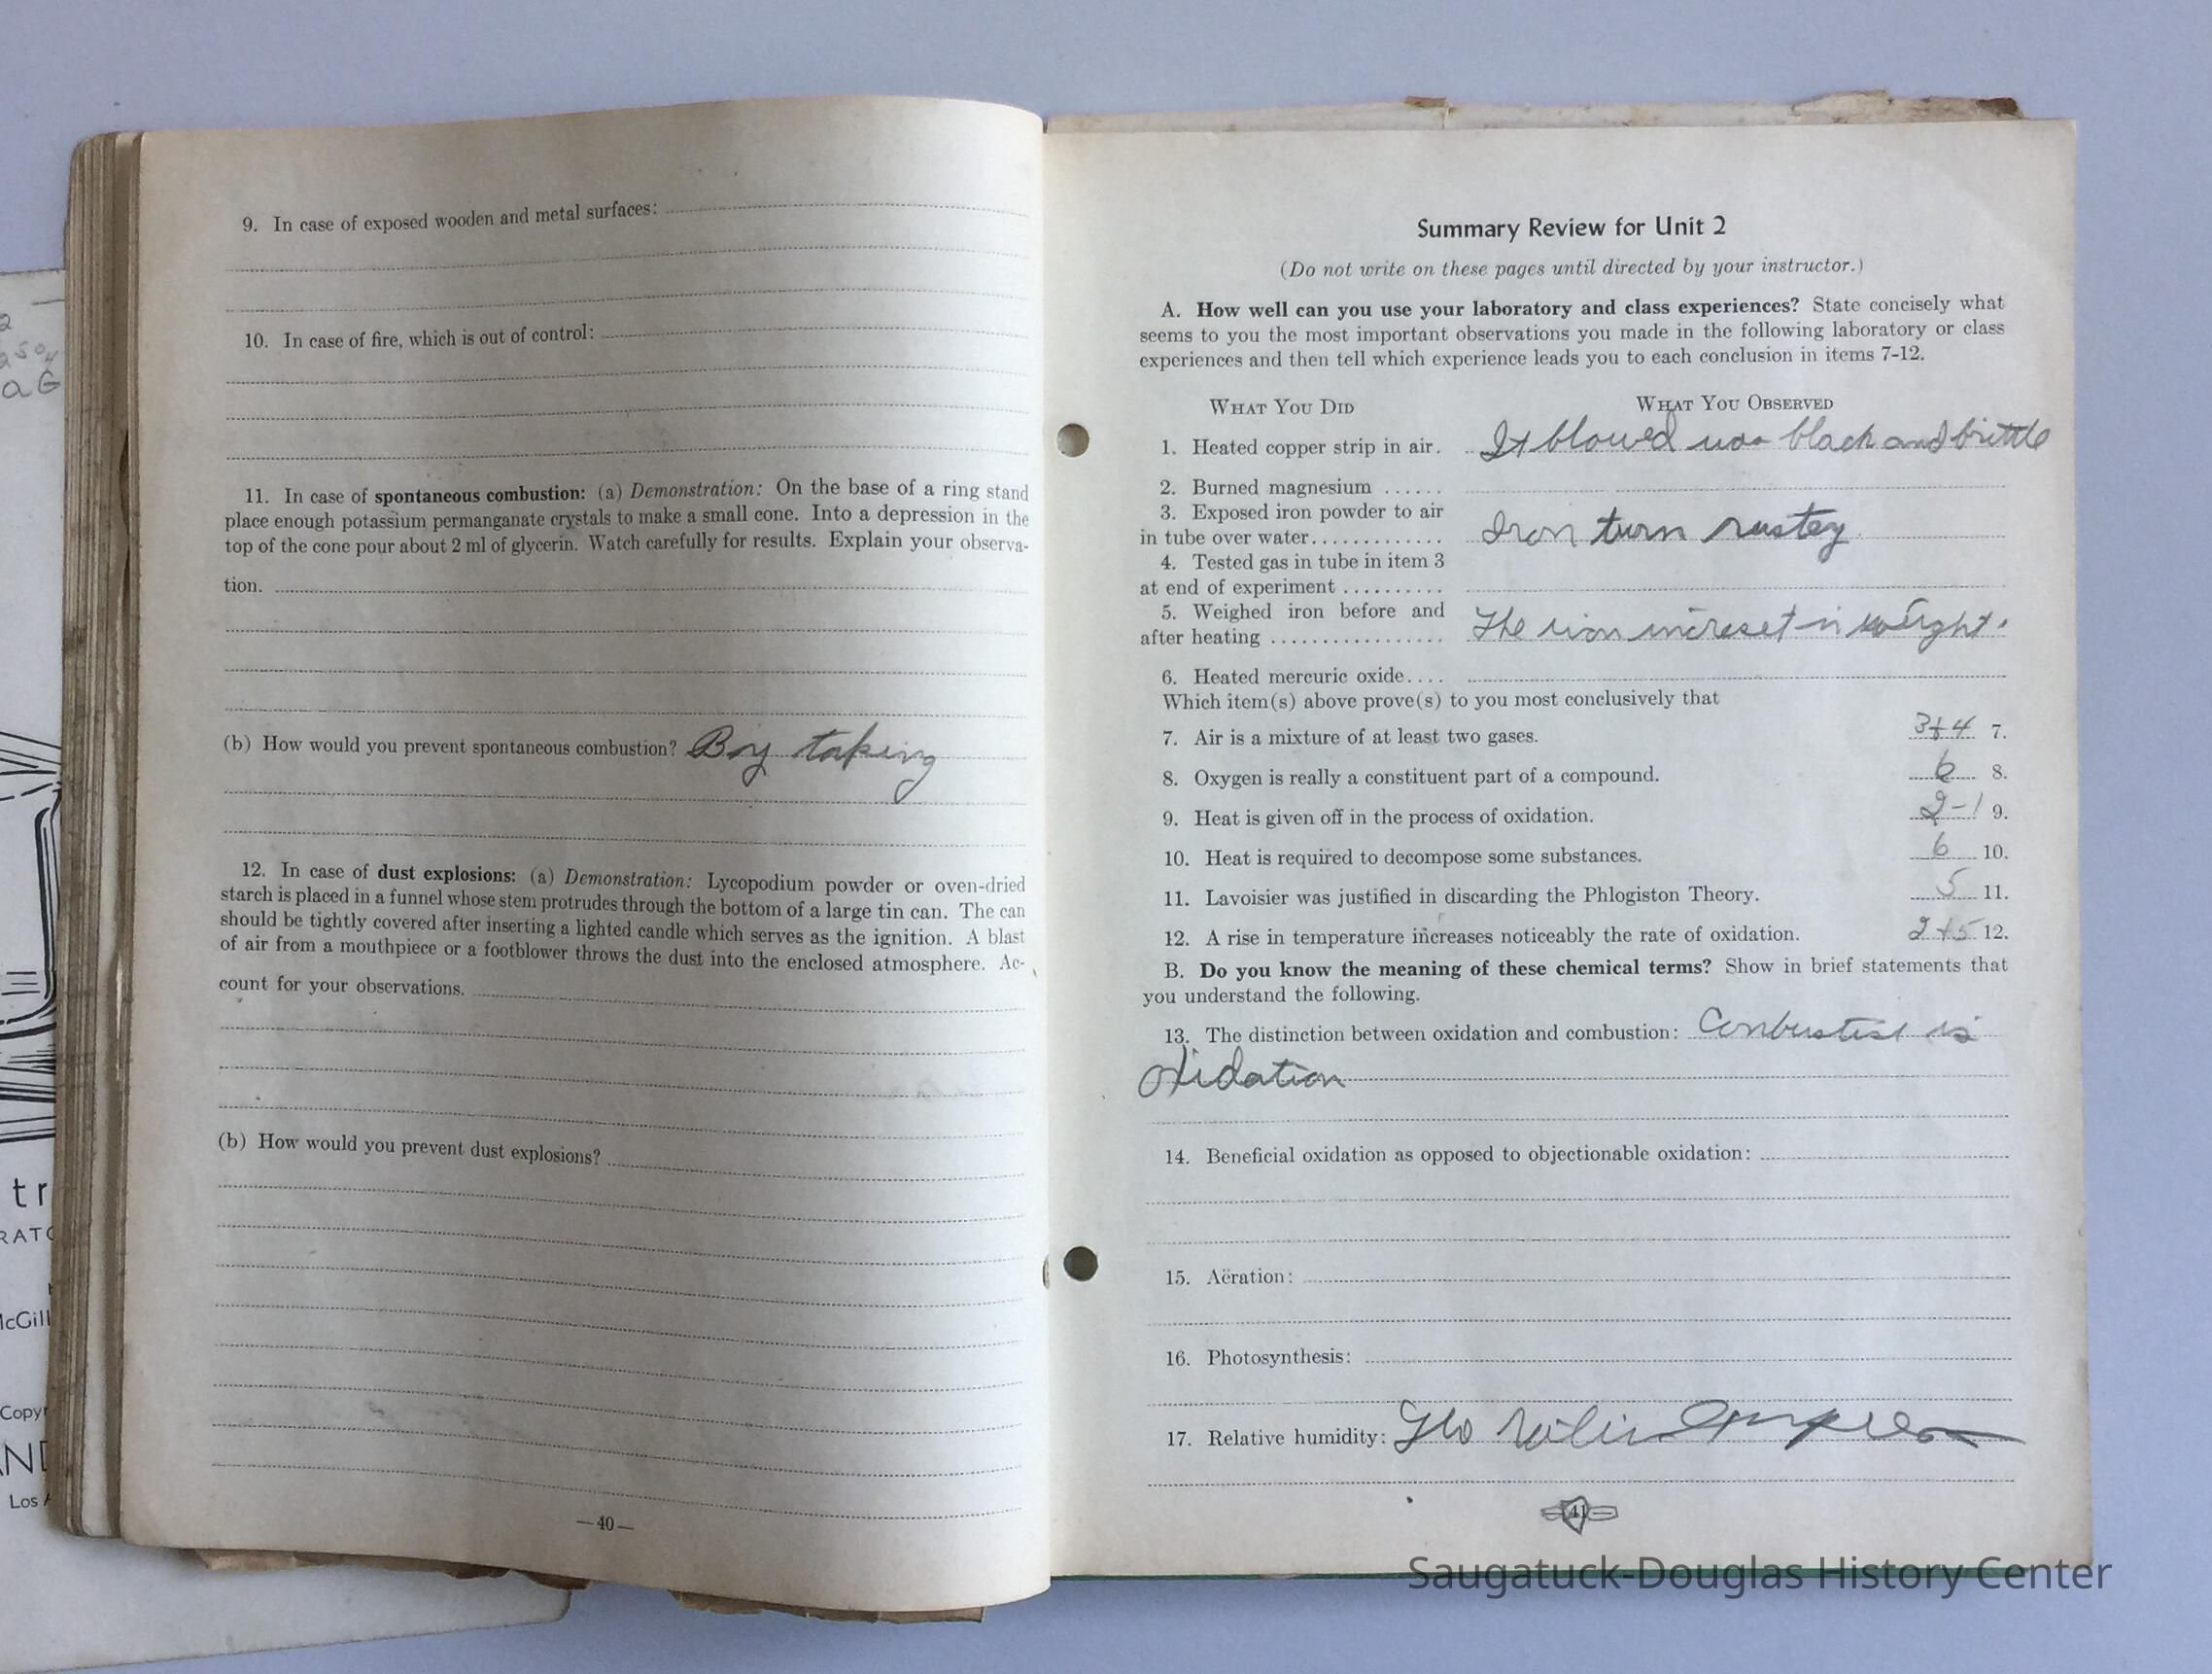 2
aG
tr
RATO
McGill
Copyr
AND
Los A
9. In case of exposed wooden and metal surfaces:
10. In case of fire, which is out of control:
11. In case of spontaneous combustion: (a) Demonstration: On the base of a ring stand
place enough potassium permanganate crystals to make a small cone. Into a depression in the
top of the cone pour about 2 ml of glycerin. Watch carefully for results. Explain your observa-
tion.
(b) How would you prevent spontaneous combustion? Boy taking
12. In case of dust explosions: (a) Demonstration: Lycopodium powder or oven-dried
starch is placed in a funnel whose stem protrudes through the bottom of a large tin can. The can
should be tightly covered after inserting a lighted candle which serves as the ignition. A blast
of air from a mouthpiece or a footblower throws the dust into the enclosed atmosphere. Ac-
count for your observations.
(b) How would you prevent dust explosions?
—40—
Summary Review for Unit 2
(Do not write on these pages until directed by your instructor.)
A. How well can you use your laboratory and class experiences? State concisely what
seems to you the most important observations you made in the following laboratory or class
experiences and then tell which experience leads you to each conclusion in items 7-12.
WHAT YOU DID WHAT YOU OBSERVED
1. Heated copper strip in air. It blowed was black and brittle
2. Burned magnesium ......
3. Exposed iron powder to air
in tube over water............. Iron turn rustey
4. Tested gas in tube in item 3
at end of experiment ..........
5. Weighed iron before and
after heating ................. The iron increset in weight.
6. Heated mercuric oxide....
Which item(s) above prove(s) to you most conclusively that
7. Air is a mixture of at least two gases. 3+4 7.
8. Oxygen is really a constituent part of a compound. 6 8.
9. Heat is given off in the process of oxidation. 2-1 9.
10. Heat is required to decompose some substances. 6 10.
11. Lavoisier was justified in discarding the Phlogiston Theory. 5 11.
12. A rise in temperature increases noticeably the rate of oxidation. 2+5 12.
B. Do you know the meaning of these chemical terms? Show in brief statements that
you understand the following.
13. The distinction between oxidation and combustion: is
oxidation
14. Beneficial oxidation as opposed to objectionable oxidation:
15. Aëration:
16. Photosynthesis:
17. Relative humidity:
41
Saugatuck-Douglas History Center